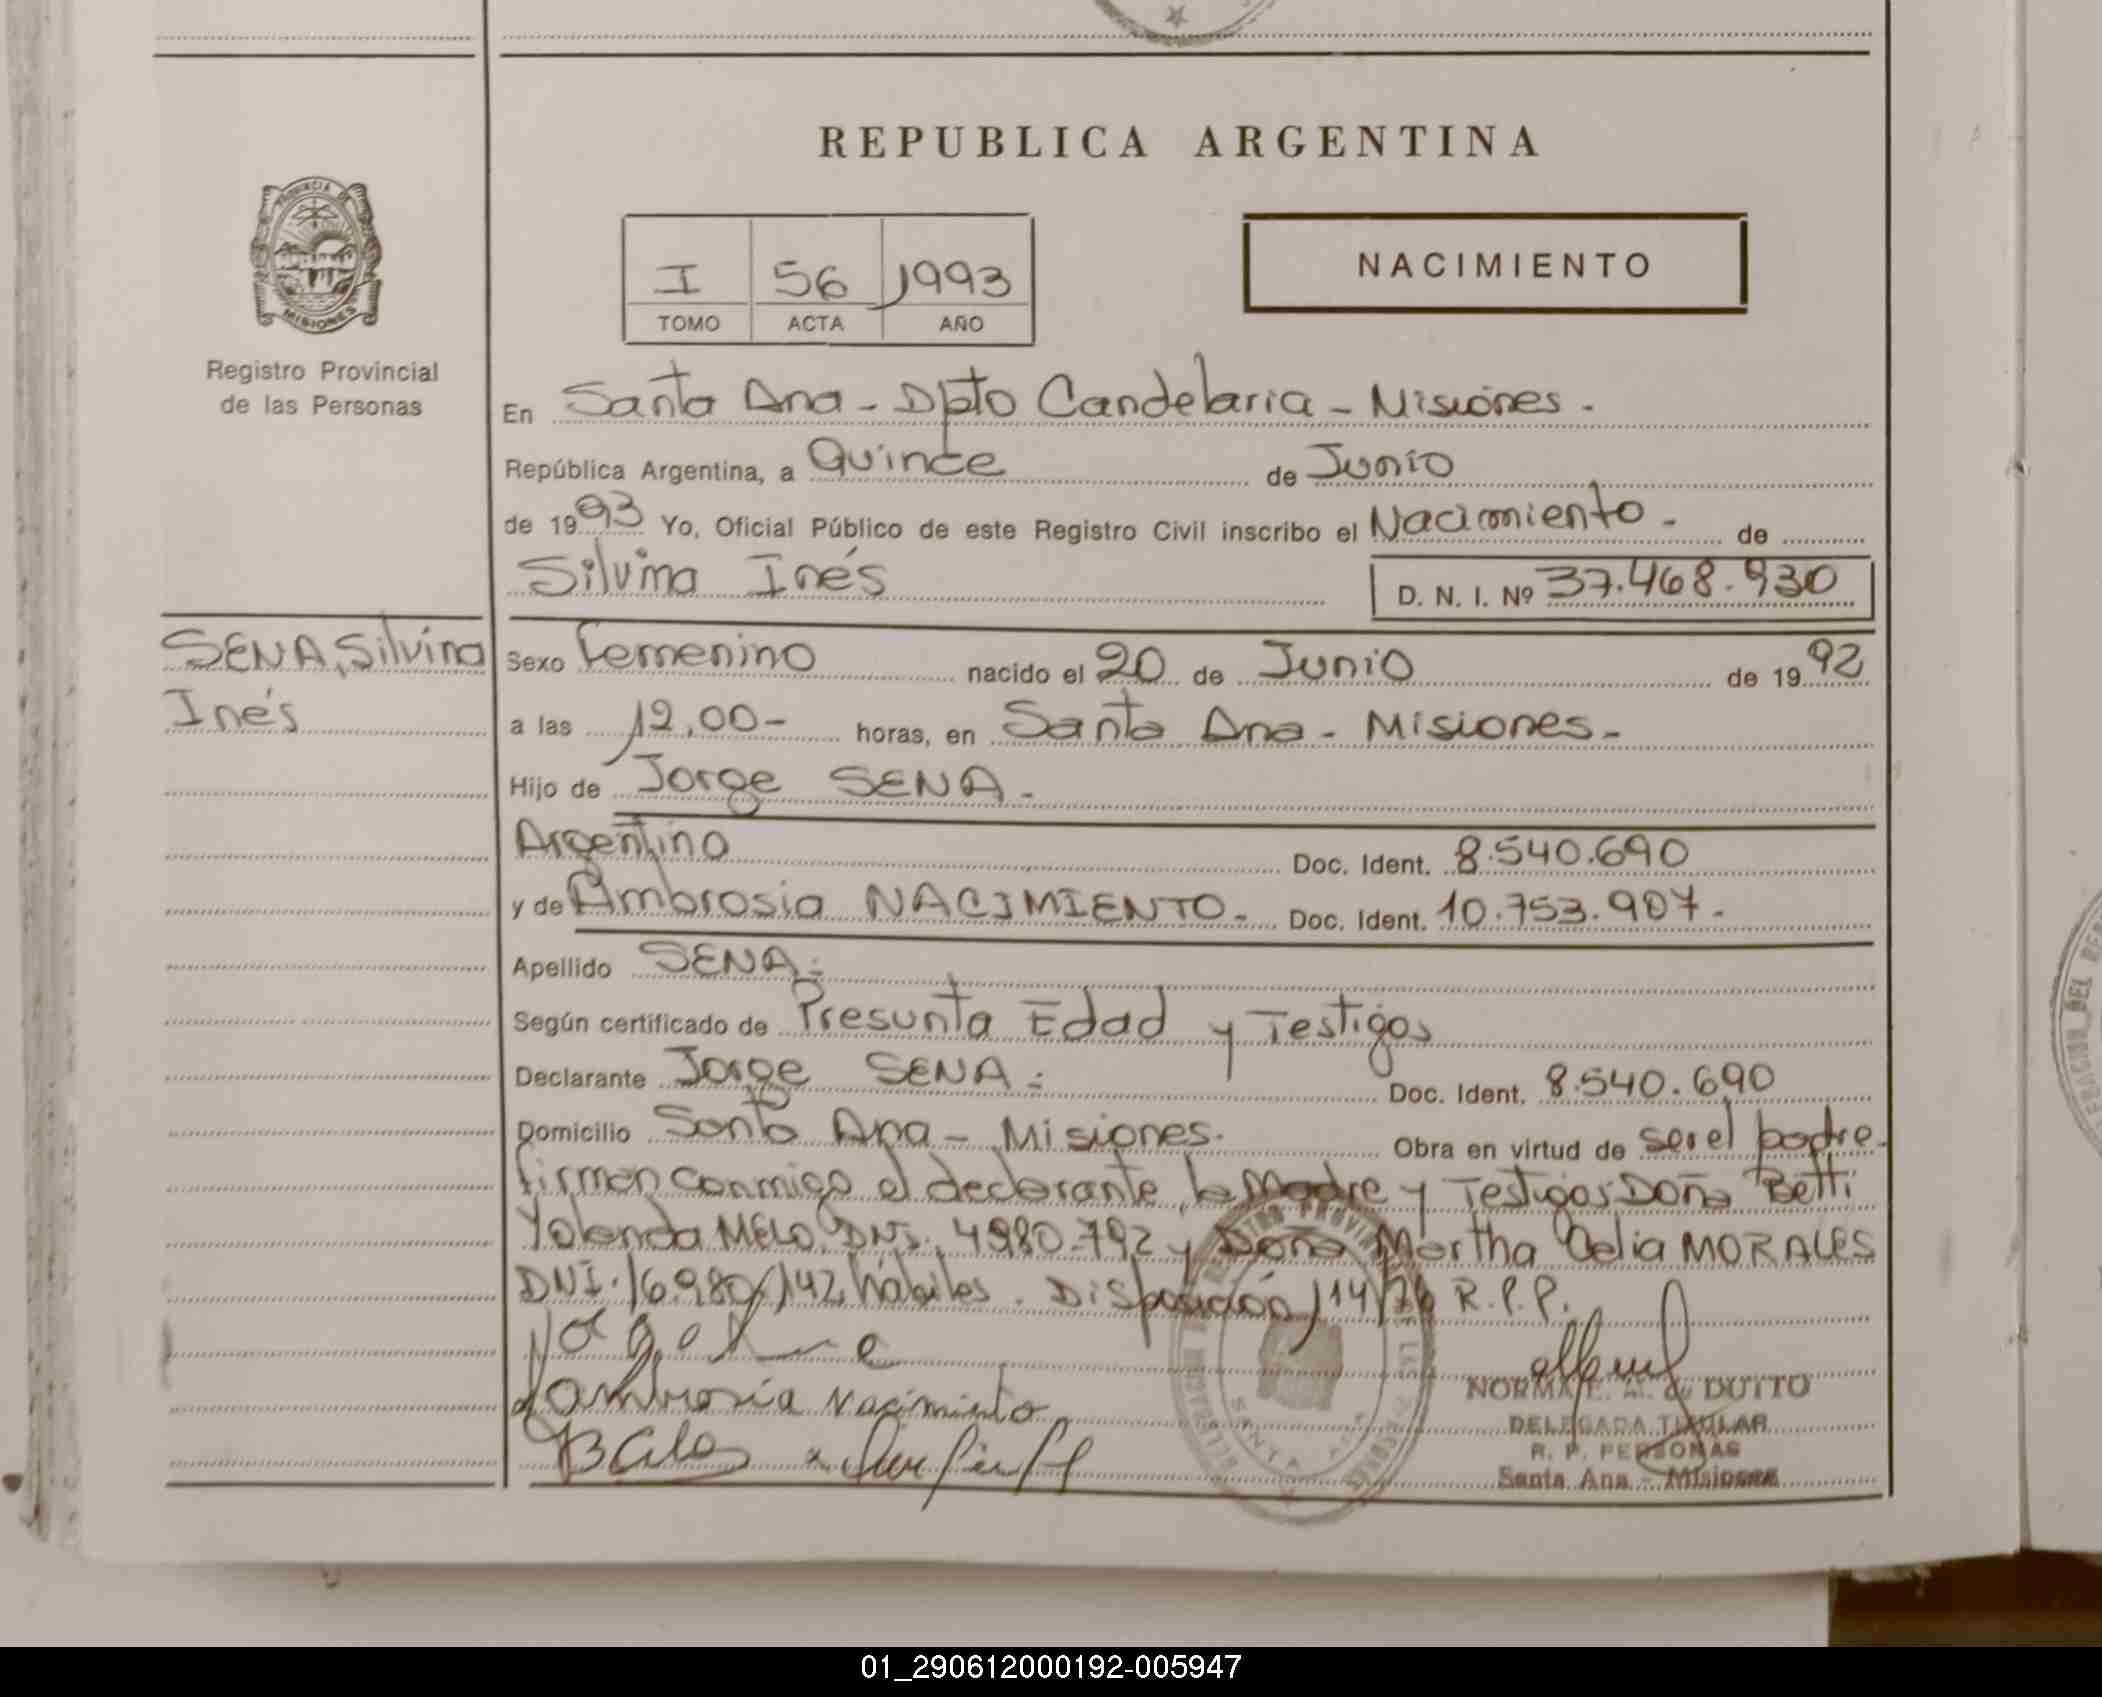 REPUBLICA ARGENTINA
PROVINCIA DE
MISIONES
Registro Provincial
de las Personas
I 56 1993
TOMO ACTA AÑO
NACIMIENTO
En Santa Ana - Dpto Candelaria - Misiones -
República Argentina, a Quince de Junio
de 1993 Yo, Oficial Público de este Registro Civil inscribo el Nacimiento - de
Silvina Inés D. N. I. Nº 37.468.930
SENA, Silvina
Inés
Sexo Femenino nacido el 20 de Junio de 1992
a las 12,00- horas, en Santa Ana - Misiones -
Hijo de Jorge SENA -
Argentino Doc. Ident. 8.540.690
y de Ambrosia NACIMIENTO - Doc. Ident. 10.753.907 -
Apellido SENA =
Según certificado de Presunta Edad y Testigos
Declarante Jorge SENA = Doc. Ident. 8.540.690
Domicilio Santa Ana - Misiones. Obra en virtud de ser el padre -
firman conmigo el declarante, la Madre y Testigos Doña Betti
Yolanda MELO DNI. 4980.792 y Doña Martha Celia MORALES
DNI. 16.980.142 hábiles. Disposición 114/76 R.P.P.
Ambrosia Nacimiento
NORMA DUTTO
DELEGADA TITULAR
R. P. PERSONAS
Santa Ana - Misiones
SANTA ANA
01_290612000192-005947